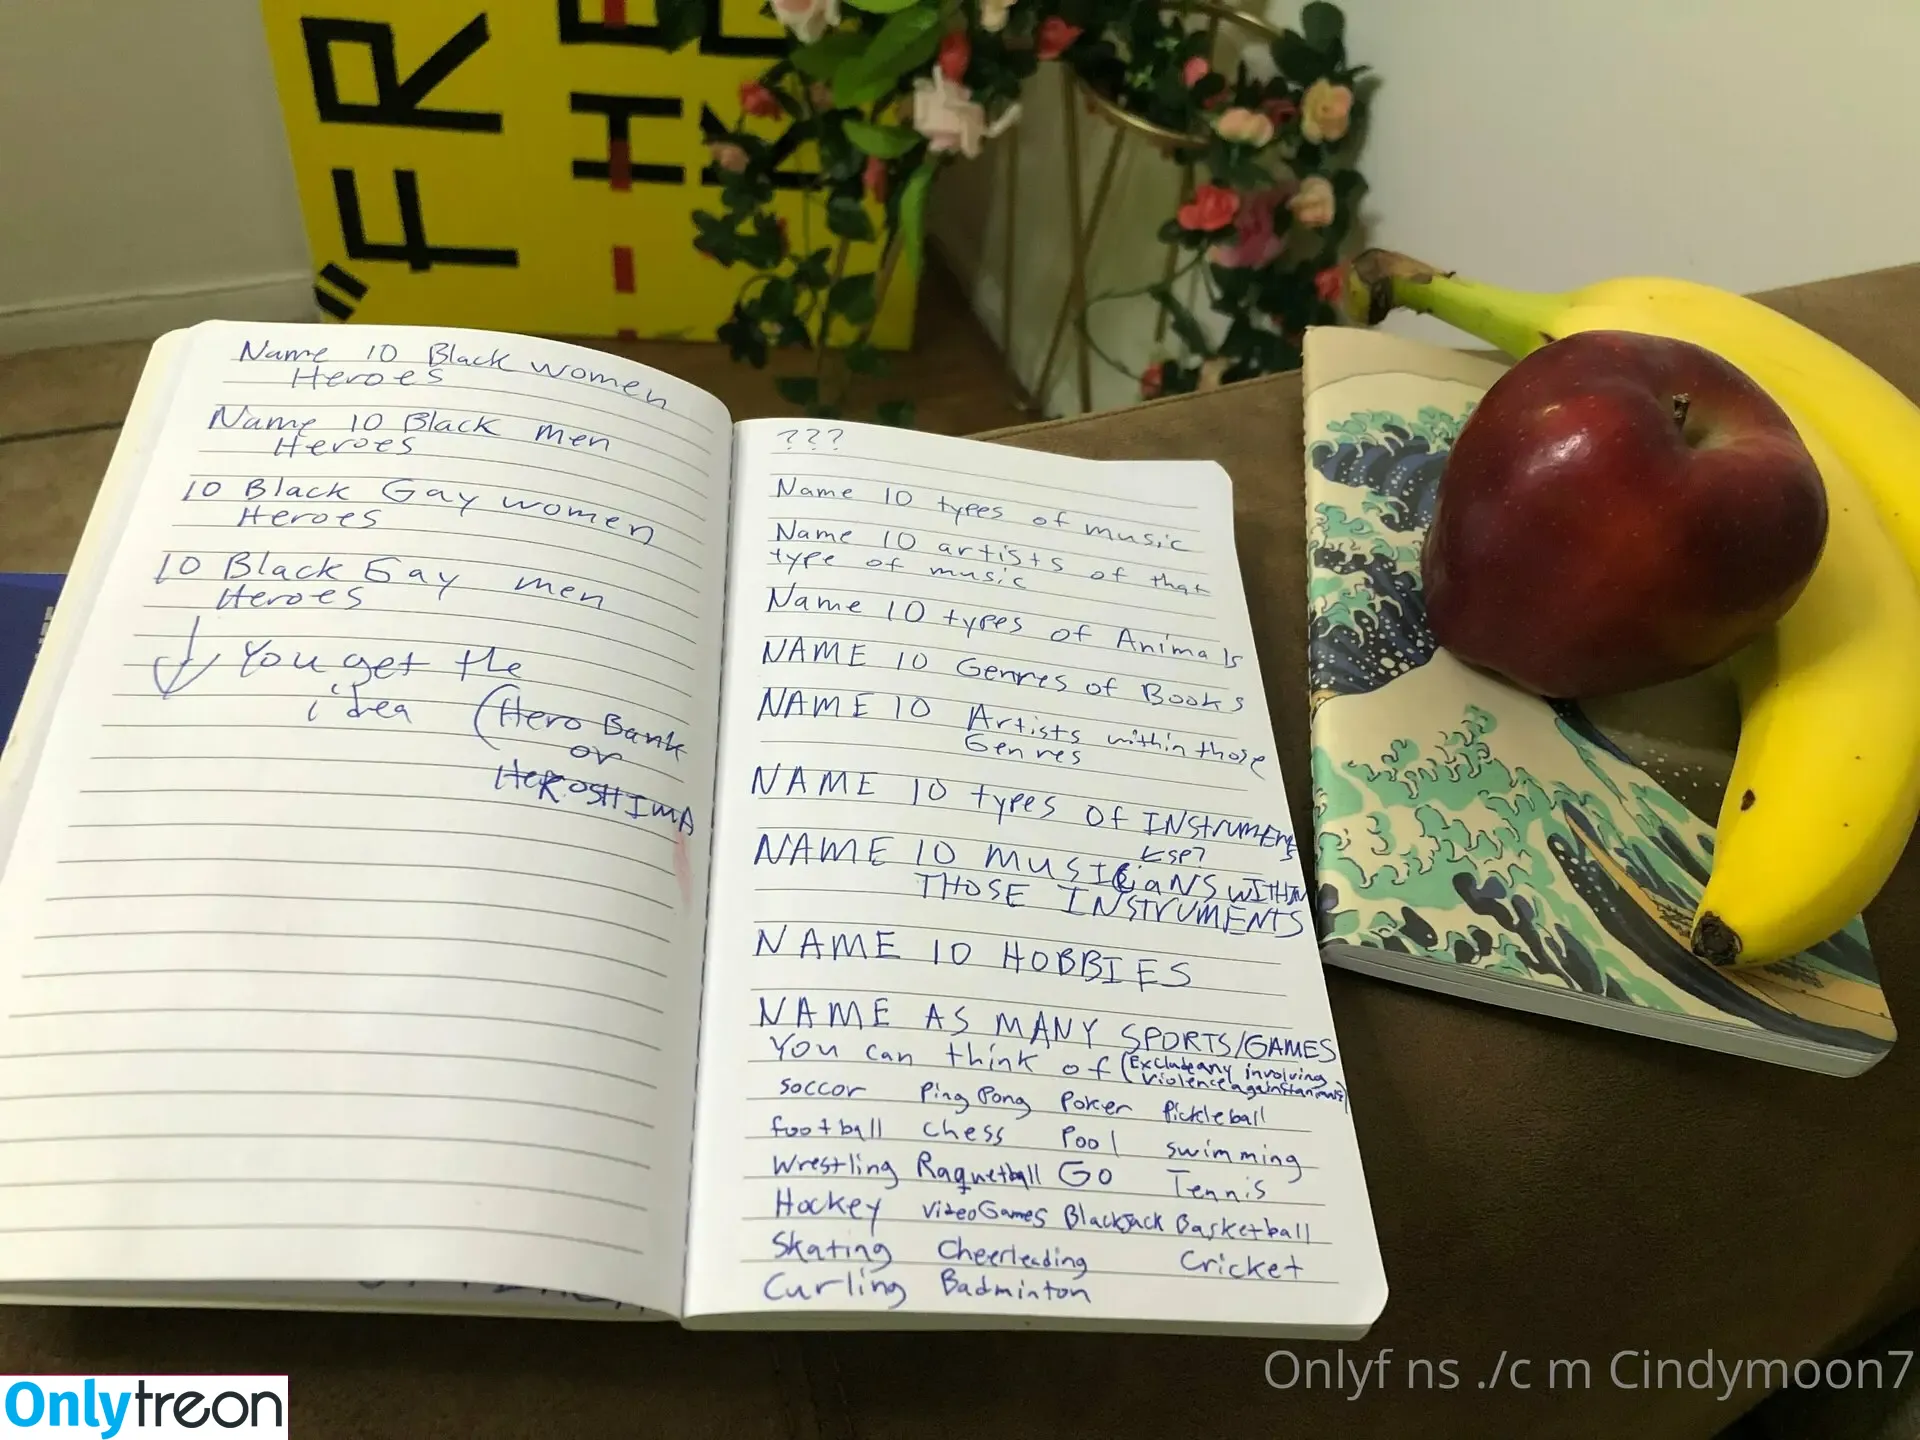 "FR
Name 10 Black women
Heroes
Name 10 Black men
Heroes
10 Black Gay women
Heroes
10 Black Gay men
Heroes
You get the
idea (Hero Bank
or
HeROSHIMA
???
Name 10 types of music
Name 10 artists of that
type of music
Name 10 types of Animals
NAME 10 Genres of Books
NAME 10 Artists within those
Genres
NAME 10 types of INSTRUMENTS
<SP?
NAME 10 MUSICIANS WITHIN
THOSE INSTRUMENTS
NAME 10 HOBBIES
NAME AS MANY SPORTS/GAMES
You can think of (Exclude any involving
violence against animals)
soccor Ping Pong Poker Pickleball
football chess Pool swimming
Wrestling Raquetball GO Tennis
Hockey VideoGames BlackJack Basketball
Skating Cheerleading Cricket
Curling Badminton
Onlyf ns ./c m Cindymoon7
Onlytreon